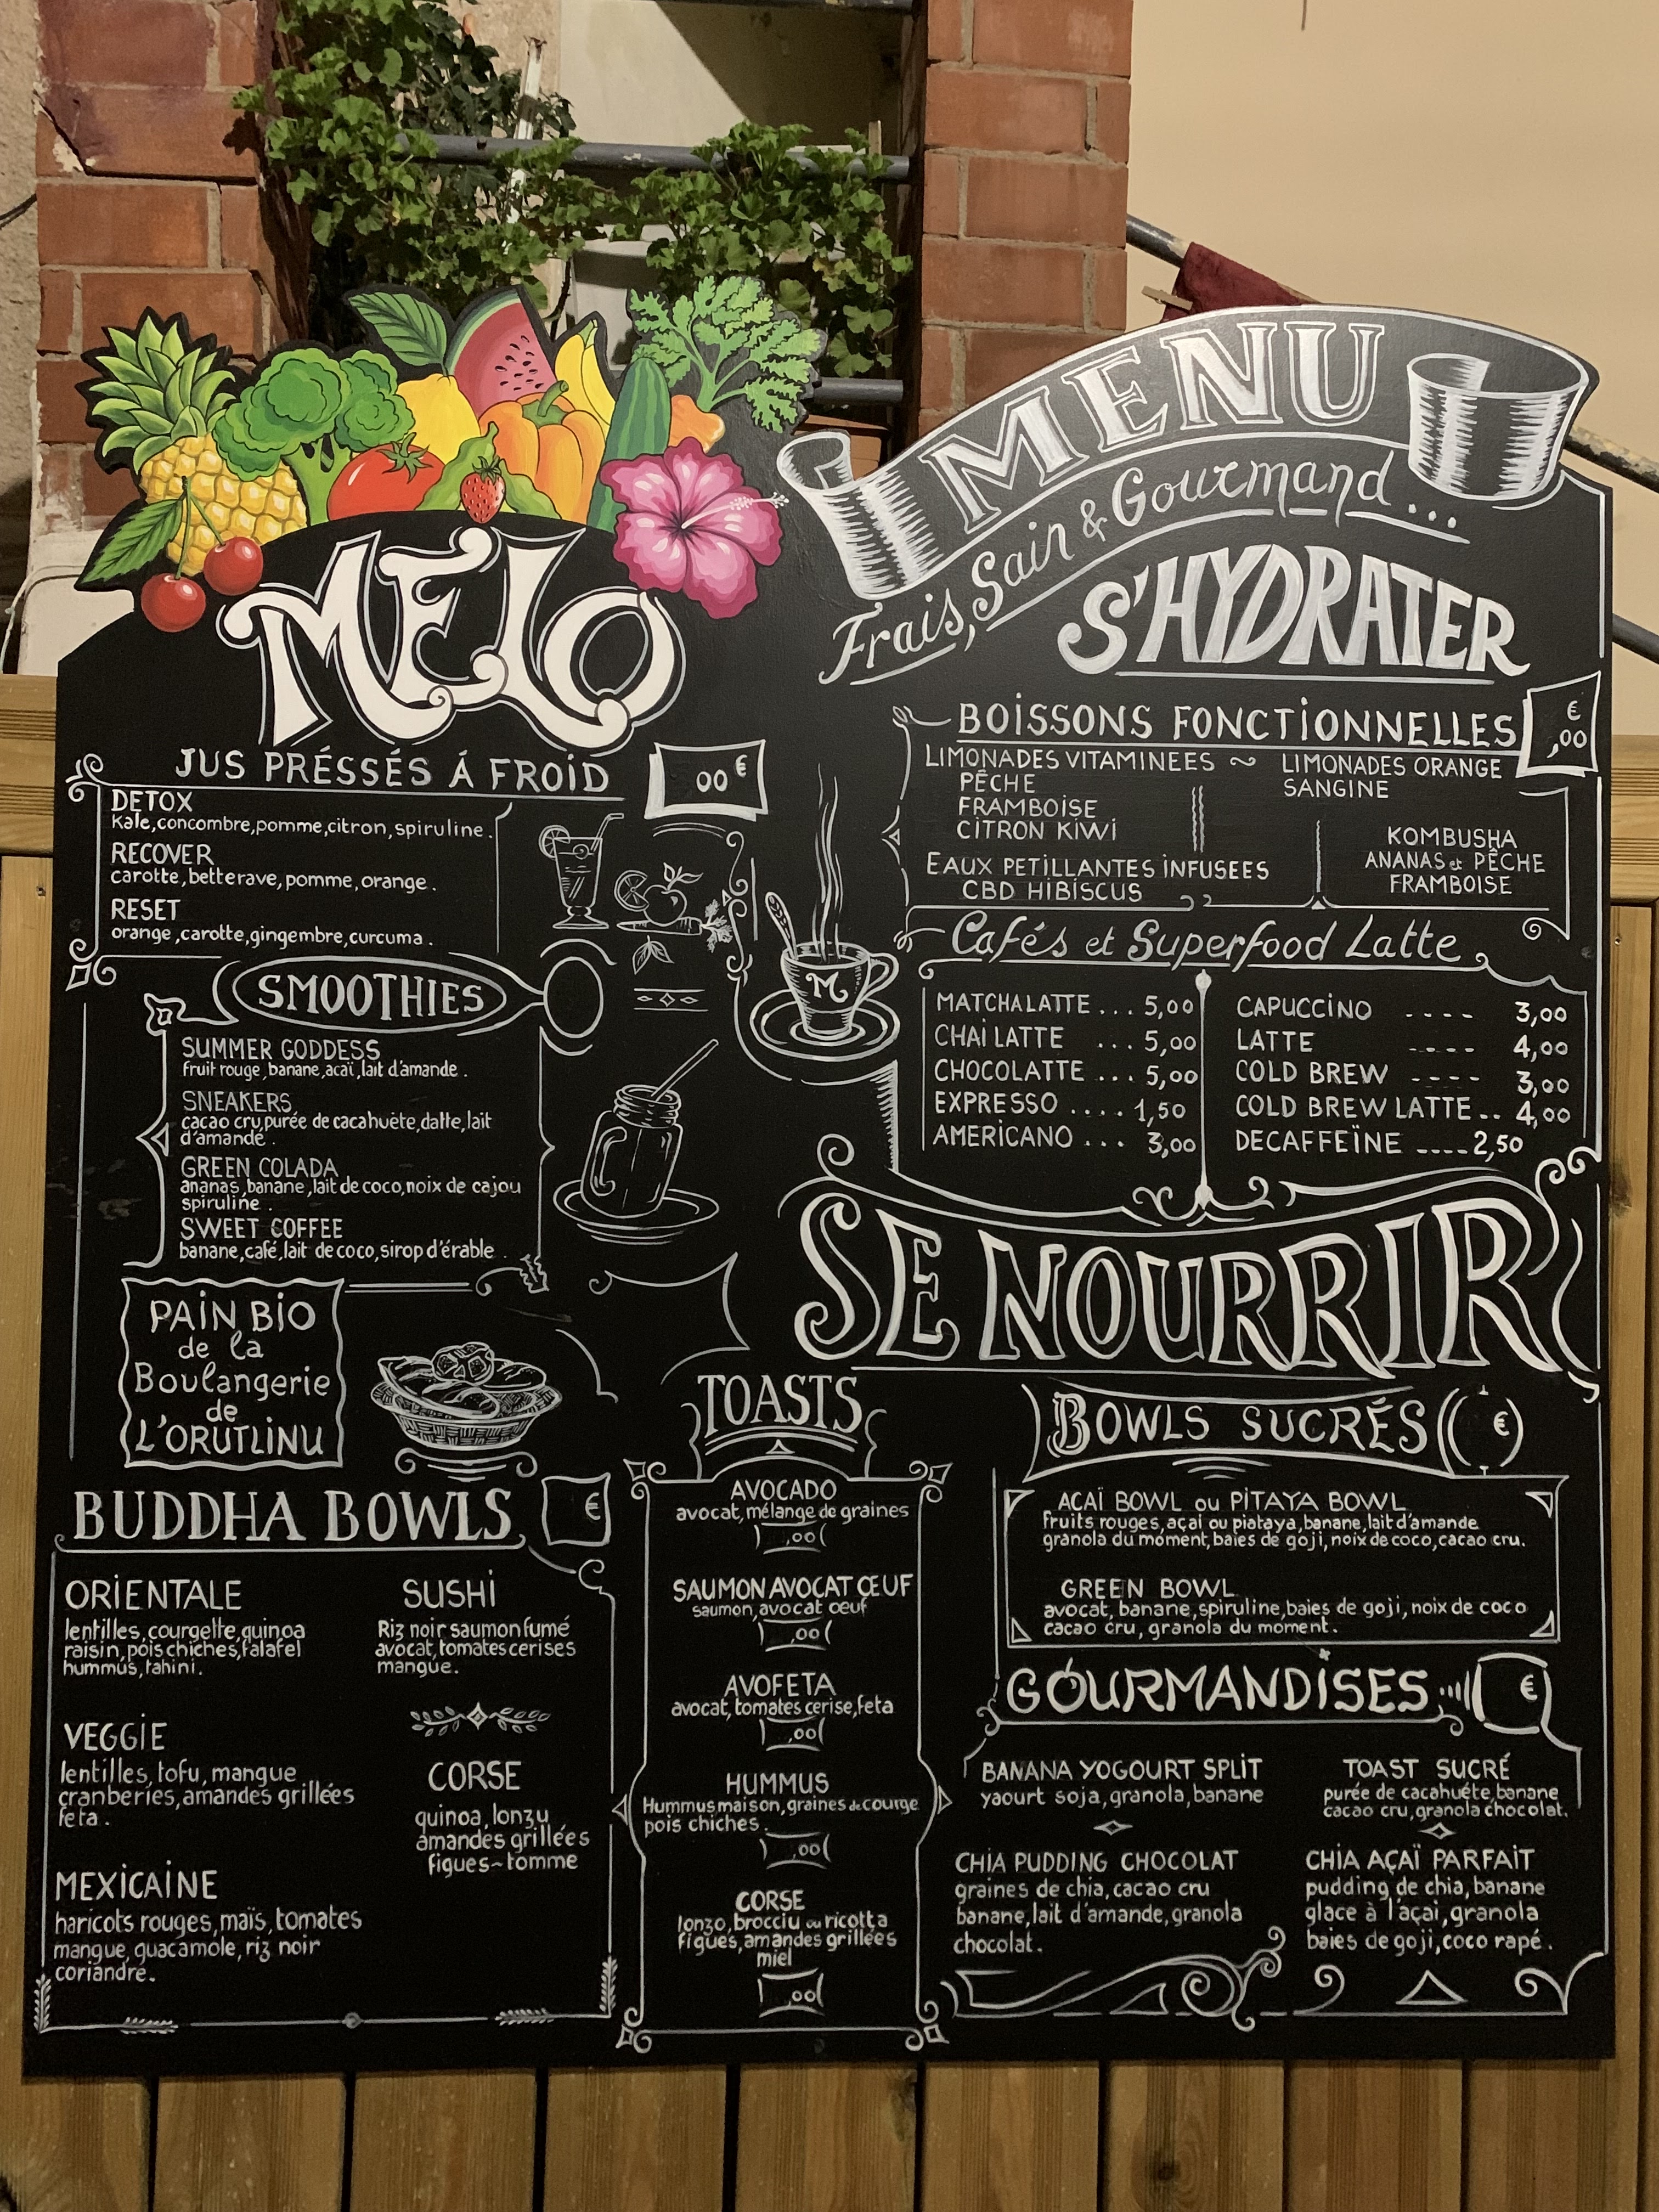 MELO
MENU
Frais, Sain & Gourmand...
JUS PRÉSSÉS Á FROID
00 €
DETOX
Kale, concombre, pomme, citron, spiruline.
RECOVER
carotte, betterave, pomme, orange.
RESET
orange, carotte, gingembre, curcuma.
SMOOTHIES
SUMMER GODDESS
fruit rouge, banane, acaï, lait d'amande.
SNEAKERS
cacao cru, purée de cacahuète, datte, lait
d'amande.
GREEN COLADA
ananas, banane, lait de coco, noix de cajou
spiruline.
SWEET COFFEE
banane, café, lait de coco, sirop d'érable.
PAIN BIO
de la
Boulangerie
de
L'ORUTLINU
BUDDHA BOWLS
€
ORIENTALE
lentilles, courgette, quinoa
raisin, pois chiches, falafel
hummus, tahini.
VEGGIE
lentilles, tofu, mangue
cranberies, amandes grillées
feta.
MEXICAINE
haricots rouges, maïs, tomates
mangue, guacamole, riz noir
coriandre.
SUSHI
Riz noir saumon fumé
avocat, tomates cerises
mangue.
CORSE
quinoa, lonzu
amandes grillées
figues~tomme
S'HYDRATER
BOISSONS FONCTIONNELLES
€
,00
LIMONADES VITAMINEES ~
PÊCHE
FRAMBOISE
CITRON KIWI
EAUX PETILLANTES INFUSEES
CBD HIBISCUS
LIMONADES ORANGE
SANGINE
KOMBUSHA
ANANAS et PÊCHE
FRAMBOISE
M
Cafés et Superfood Latte
MATCHALATTE ... 5,00
CHAI LATTE ... 5,00
CHOCOLATTE ... 5,00
EXPRESSO .... 1,50
AMERICANO ... 3,00
CAPUCCINO ---- 3,00
LATTE ---- 4,00
COLD BREW ---- 3,00
COLD BREW LATTE.. 4,00
DECAFFEÏNE ....2,50
SE NOURRIR
TOASTS
AVOCADO
avocat, mélange de graines
,00
SAUMON AVOCAT ŒUF
saumon, avocat oeuf
,00
AVOFETA
avocat, tomates cerise, feta
,00
HUMMUS
Hummus maison, graines de courge
pois chiches.
,00
CORSE
lonzo, brocciu ou ricotta
figues, amandes grillées
miel
,00
BOWLS SUCRÉS
€
AÇAÏ BOWL ou PITAYA BOWL
fruits rouges, açai ou piataya, banane, lait d'amande
granola du moment, baies de goji, noix de coco, cacao cru.
GREEN BOWL
avocat, banane, spiruline, baies de goji, noix de coco
cacao cru, granola du moment.
GOURMANDISES
€
BANANA YOGOURT SPLIT
yaourt soja, granola, banane
TOAST SUCRÉ
purée de cacahuéte, banane
cacao cru, granola chocolat.
CHIA PUDDING CHOCOLAT
graines de chia, cacao cru
banane, lait d'amande, granola
chocolat.
CHIA AÇAÏ PARFAIT
pudding de chia, banane
glace à l'açai, granola
baies de goji, coco rapé.